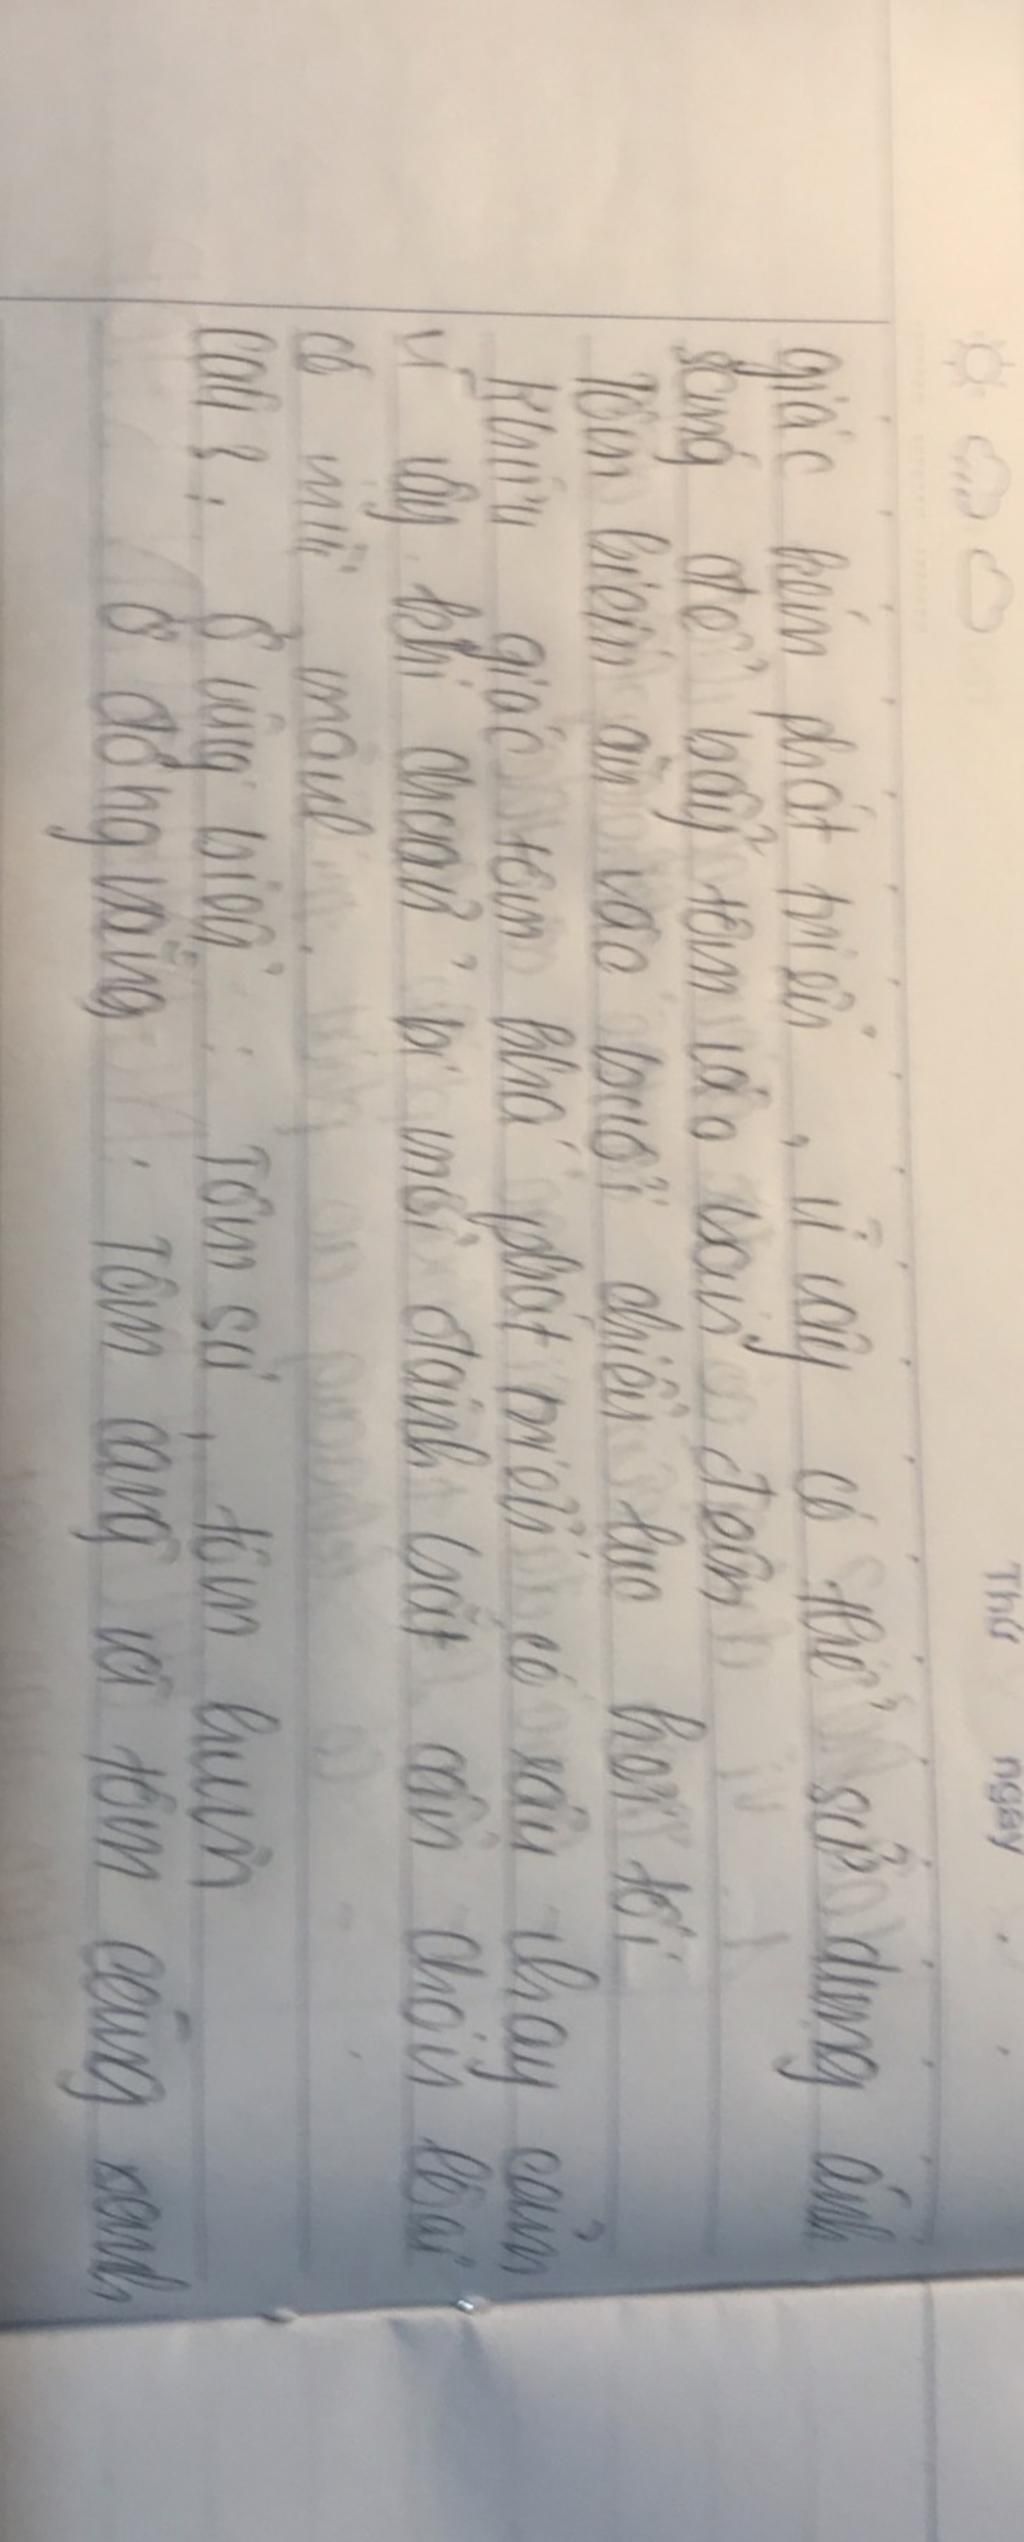 Thứ ngày
giác kém phát triển, vì vậy có thể sử dụng ánh
sáng để bẫy tôm vào ban đêm
Tôm kiếm ăn vào buổi chiều tục hơi tối
Khứu giác tôm khá phát triển, có râu nhạy cảm
vì vậy khi chuẩn bị mồi đánh bắt cần chọn loại
có mùi mạnh.
Câu 3: Ở vùng biển: Tôm sú, tôm hùm
Ở đồng bằng: Tôm càng và tôm càng xanh